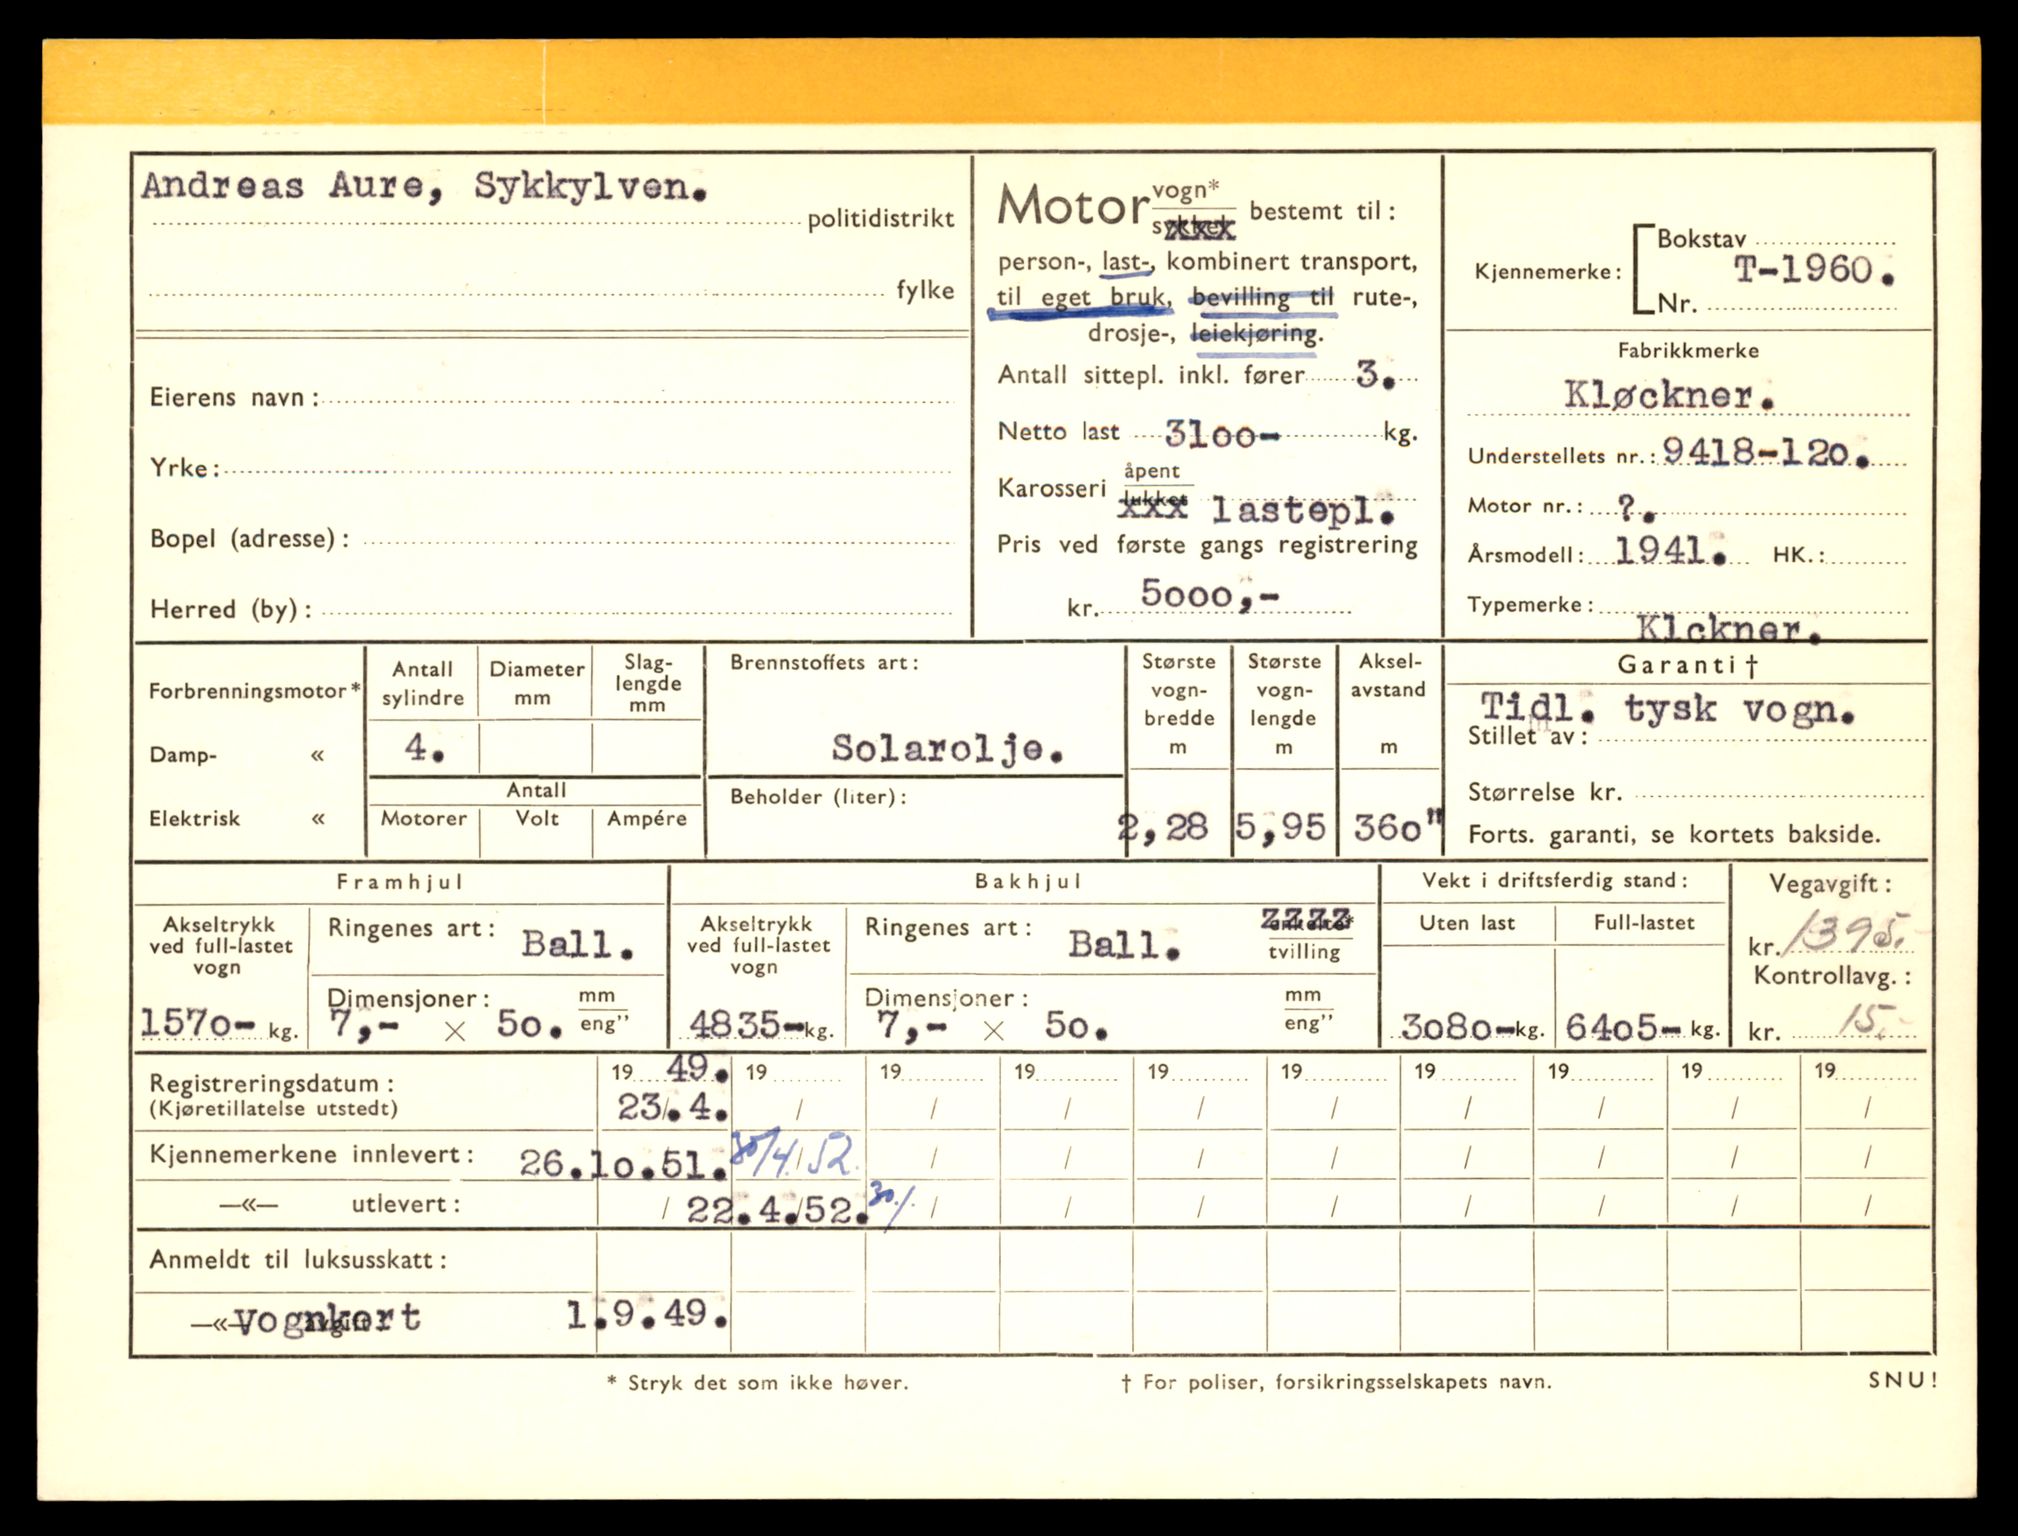 Andreas Aure, Sykkylven.
politidistrikt
fylke
Eierens navn:
Yrke:
Bopel (adresse):
Herred (by):
Motor vogn*
sykkel xxx bestemt til:
person-, last-, kombinert transport,
til eget bruk, bevilling til rute-,
drosje-, leiekjøring.
Antall sittepl. inkl. fører 3.
Netto last 3100- kg.
Karosseri åpent
lukket xxx lastepl.
Pris ved første gangs registrering
kr. 5000,-
Kjennemerke: Bokstav
T-1960.
Nr.
Fabrikkmerke
Kløckner.
Understellets nr.: 9418-120.
Motor nr.: ?.
Årsmodell: 1941. HK.:
Typemerke:
Klckner.
Forbrenningsmotor*
Damp- «
Elektrisk «
Antall sylindre
Diameter mm
Slag-
lengde
mm
4.
Antall
Motorer Volt Ampére
Brennstoffets art:
Solarolje.
Beholder (liter):
Største
vogn-
bredde
m
2,28
Største
vogn-
lengde
m
5,95
Aksel-
avstand
m
360"
Garanti †
Tidl. tysk vogn.
Stillet av:
Størrelse kr.
Forts. garanti, se kortets bakside.
Framhjul
Akseltrykk
ved full-lastet
vogn
1570- kg.
Ringenes art: Ball.
Dimensjoner: mm
7,- × 50. eng”
Bakhjul
Akseltrykk
ved full-lastet
vogn
4835- kg.
Ringenes art: Ball. enkelte* zzzz
tvilling
Dimensjoner: mm
7,- × 50. eng”
Vekt i driftsferdig stand:
Uten last Full-lastet
3080- kg. 6405- kg.
Vegavgift:
kr. 1395.-
Kontrollavg.:
kr. 15.-
Registreringsdatum: 19 49. 19 19 19 19 19 19 19 19 19
(Kjøretillatelse utstedt) 23/.4. / / / / / / / / /
Kjennemerkene innlevert: 26.10.51. 30/4/52. / / / / / / / /
—«— utlevert: / 22.4./52. 30/. / / / / / / / /
Anmeldt til luksusskatt:
—«— avgift: Vognkort 1.9.49.
* Stryk det som ikke høver. † For poliser, forsikringsselskapets navn. SNU!